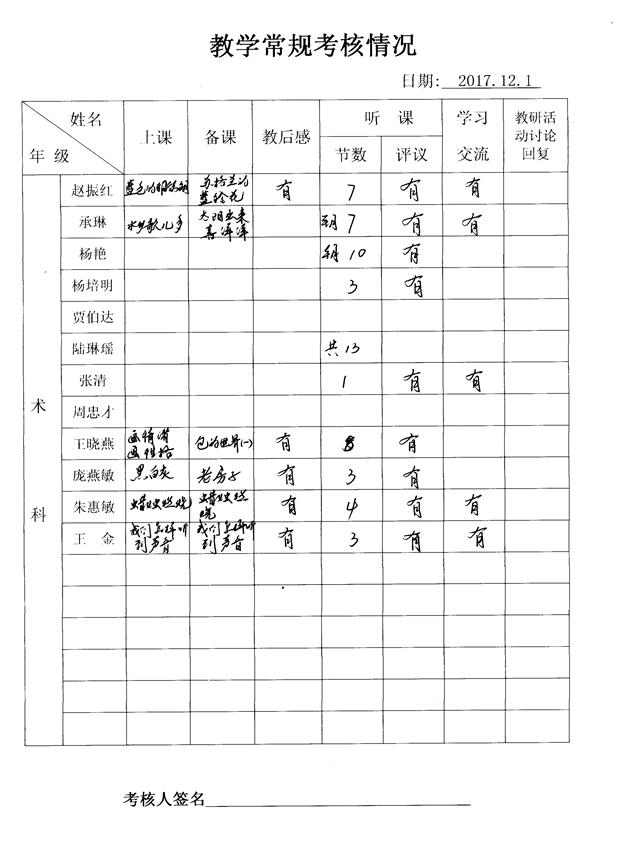 教学常规考核情况
日期: 2017.12.1
姓名
年 级
上课
备课
教后感
听 课
节数
评议
学习
交流
教研活
动讨论
回复
术
科
赵振红 苏格兰的 有 7 有 有
承琳 水乡歌儿多 太阳出来喜洋洋 7 有 有
杨艳 10 有
杨培明 3 有
贾伯达
陆琳瑶 共13
张清 1 有 有
周忠才
王晓燕 画情绪 画性格 包的世界(一) 有 有
庞燕敏 黑白灰 老房子 有 3 有
朱惠敏 蜡烛燃烧 蜡烛燃烧 有 4 有 有
王 金 我们怎样听到声音 我们怎样听到声音 有 3 有 有
考核人签名